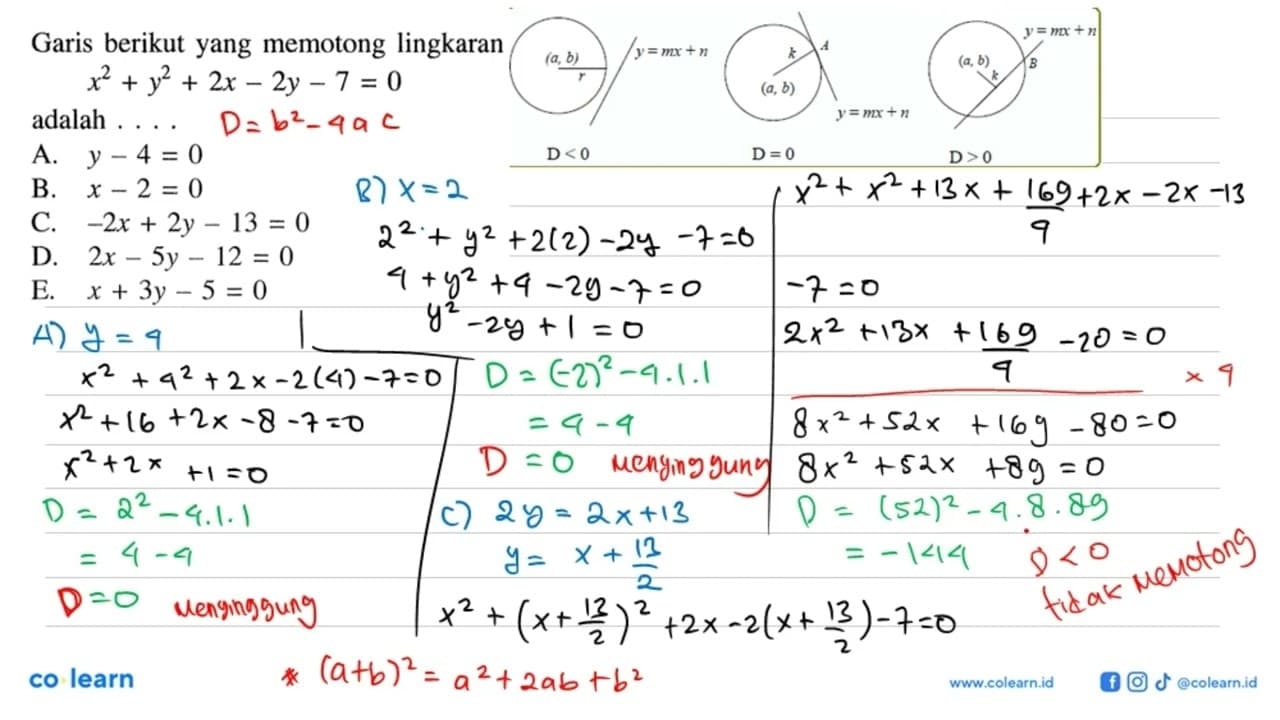 Garis berikut yang memotong lingkaran
x² + y² + 2x − 2y − 7 = 0
adalah . . . .
D = b² − 4ac
A. y − 4 = 0
B. x − 2 = 0
C. −2x + 2y − 13 = 0
D. 2x − 5y − 12 = 0
E. x + 3y − 5 = 0
(a, b)
r
y = mx + n
D < 0
k
A
(a, b)
y = mx + n
D = 0
y = mx + n
(a, b)
k
B
D > 0
A) y = 4
x² + 4² + 2x − 2(4) − 7 = 0
x² + 16 + 2x − 8 − 7 = 0
x² + 2x + 1 = 0
D = 2² − 4.1.1
= 4 − 4
D = 0 Menyinggung
B) x = 2
2² + y² + 2(2) − 2y − 7 = 0
4 + y² + 4 − 2y − 7 = 0
y² − 2y + 1 = 0
D = (−2)² − 4.1.1
= 4 − 4
D = 0 Menyinggung
C) 2y = 2x + 13
y = x + 13/2
x² + (x + 13/2)² + 2x − 2(x + 13/2) − 7 = 0
* (a+b)² = a² + 2ab + b²
x² + x² + 13x + 169/4 + 2x − 2x − 13
− 7 = 0
2x² + 13x + 169/4 − 20 = 0
× 4
8x² + 52x + 169 − 80 = 0
8x² + 52x + 89 = 0
D = (52)² − 4.8.89
= −144 D < 0
tidak memotong
co learn
www.colearn.id
@colearn.id